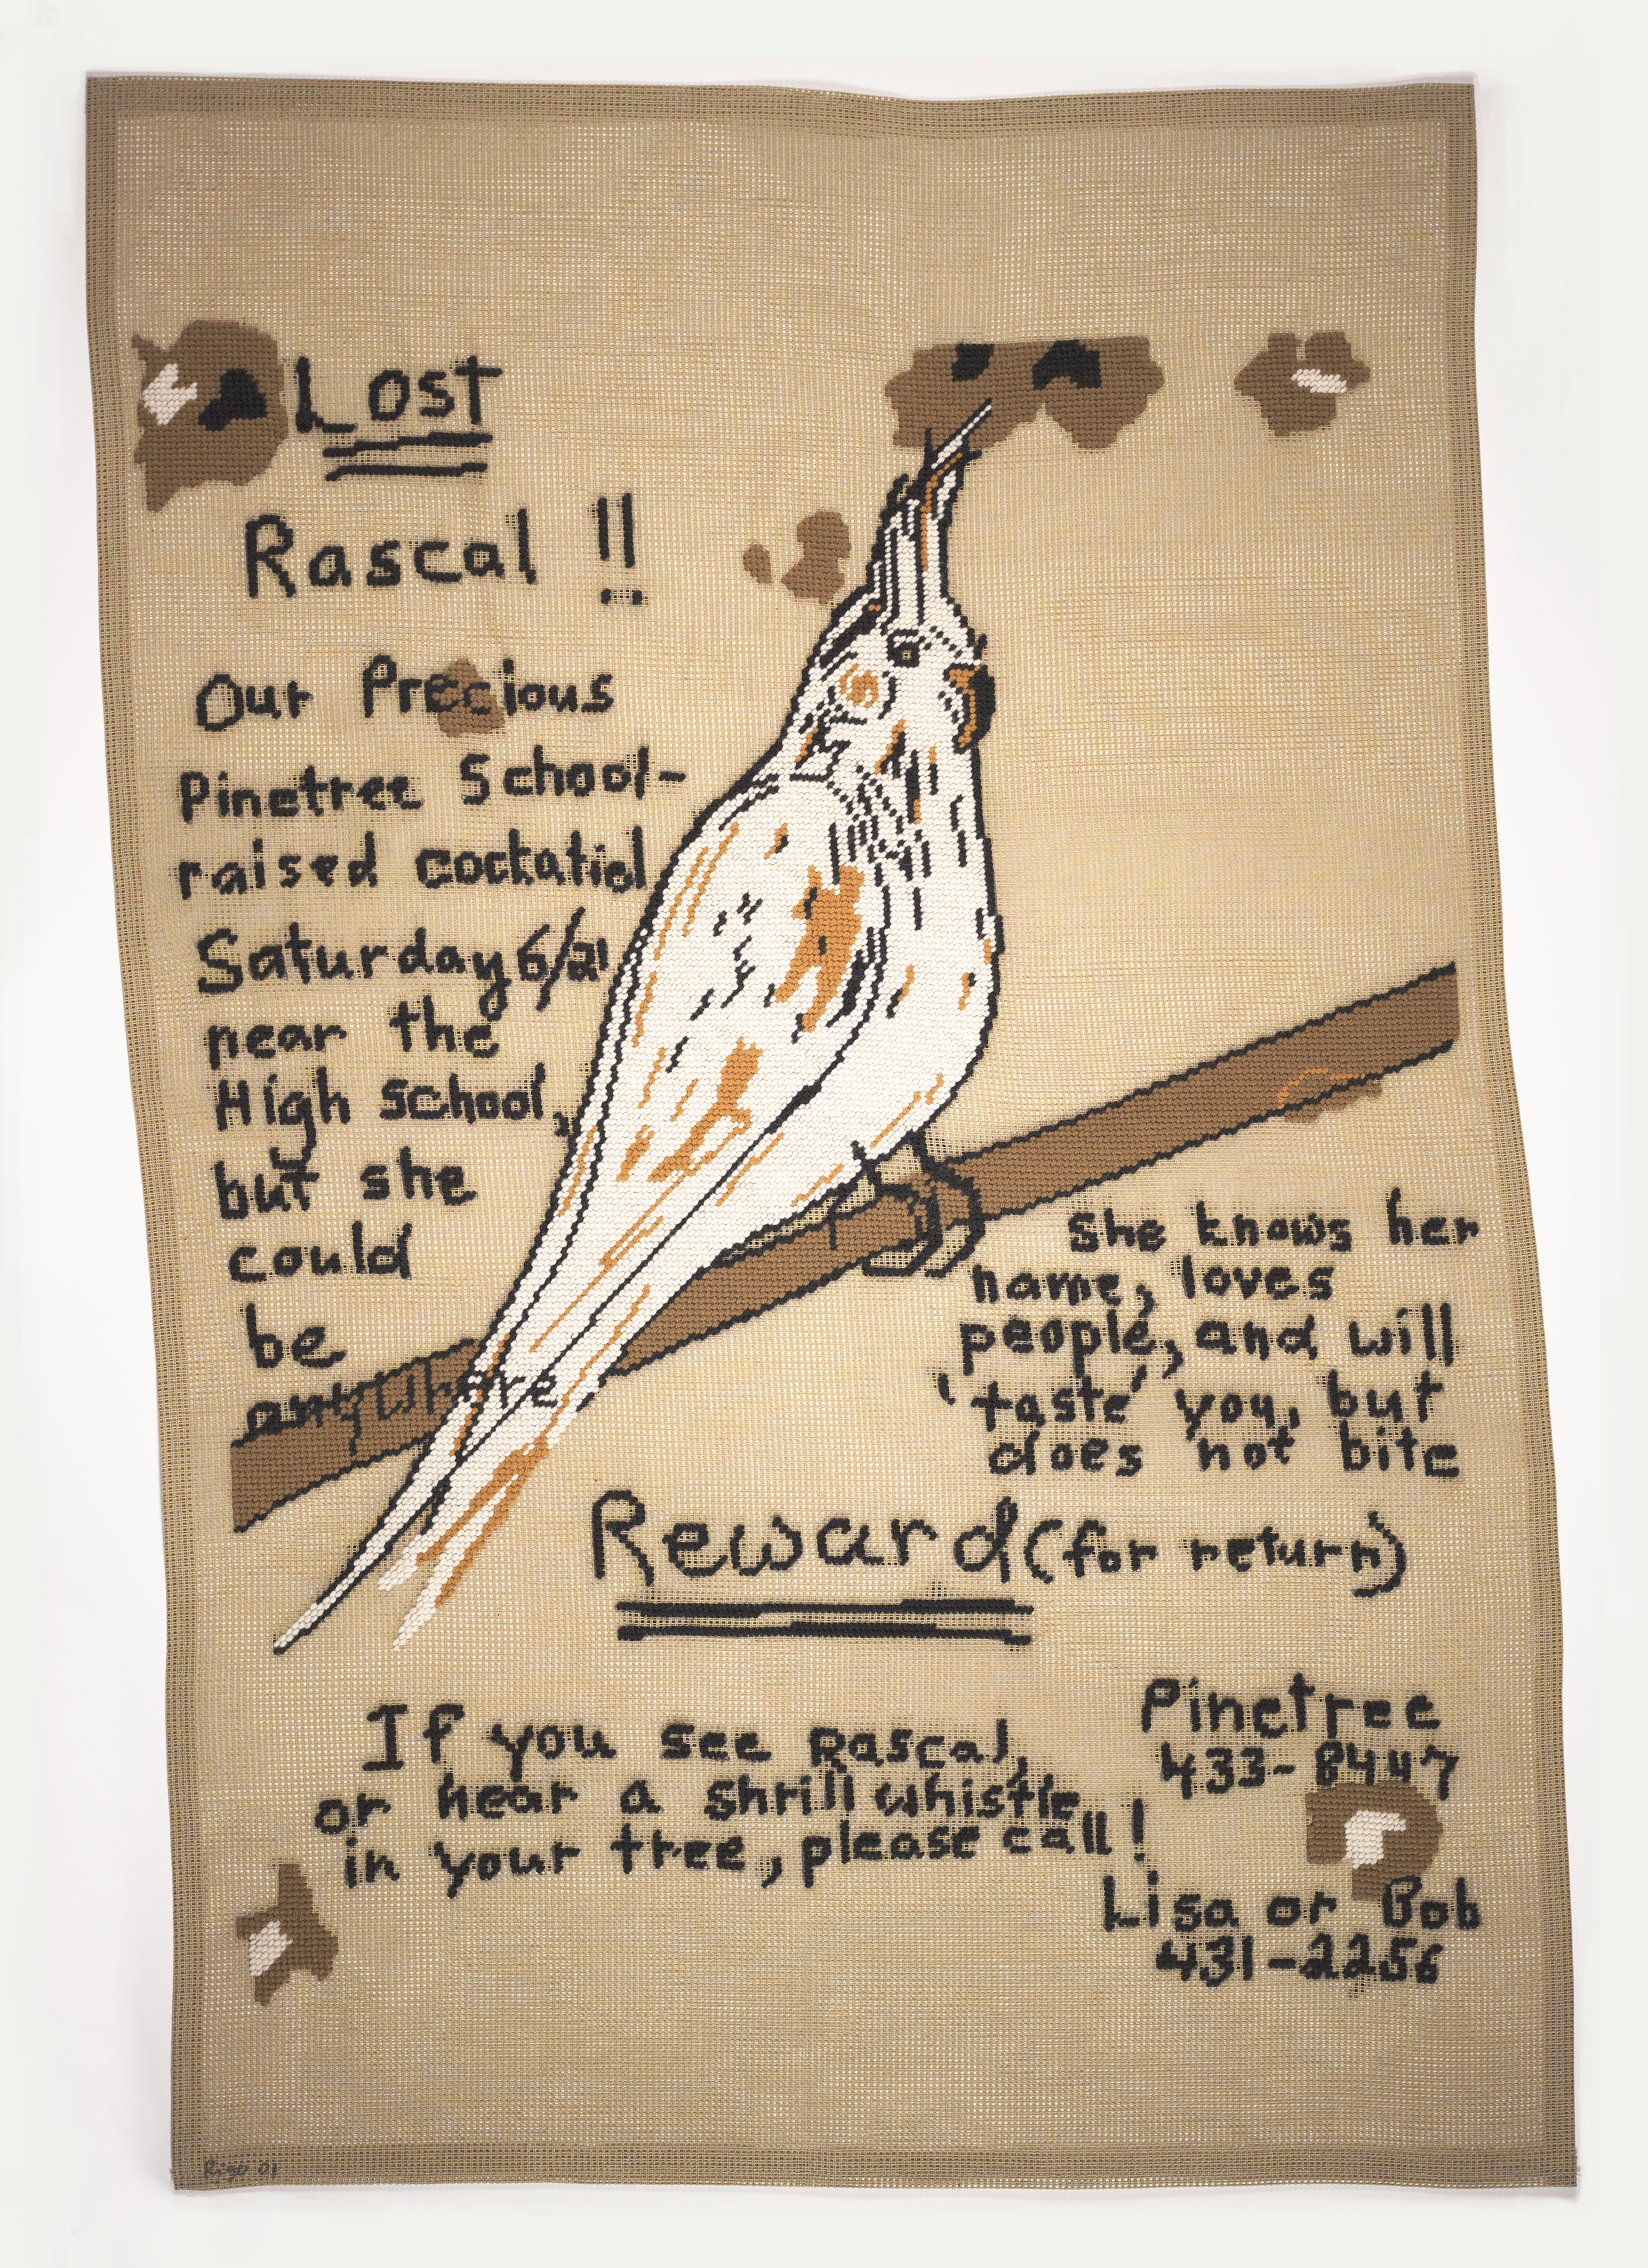 Lost
Rascal !!
Our Precious
Pinetree School-
raised cockatiel
Saturday 6/21
near the
High School,
but she
could
be
anywhere
She knows her
name, loves
people, and will
'taste' you, but
does not bite
Reward (for return)
If you see Rascal,
or hear a shrill whistle
in your tree, please call!
Pinetree
433-8447
Lisa or Bob
431-2256
Rigo 01